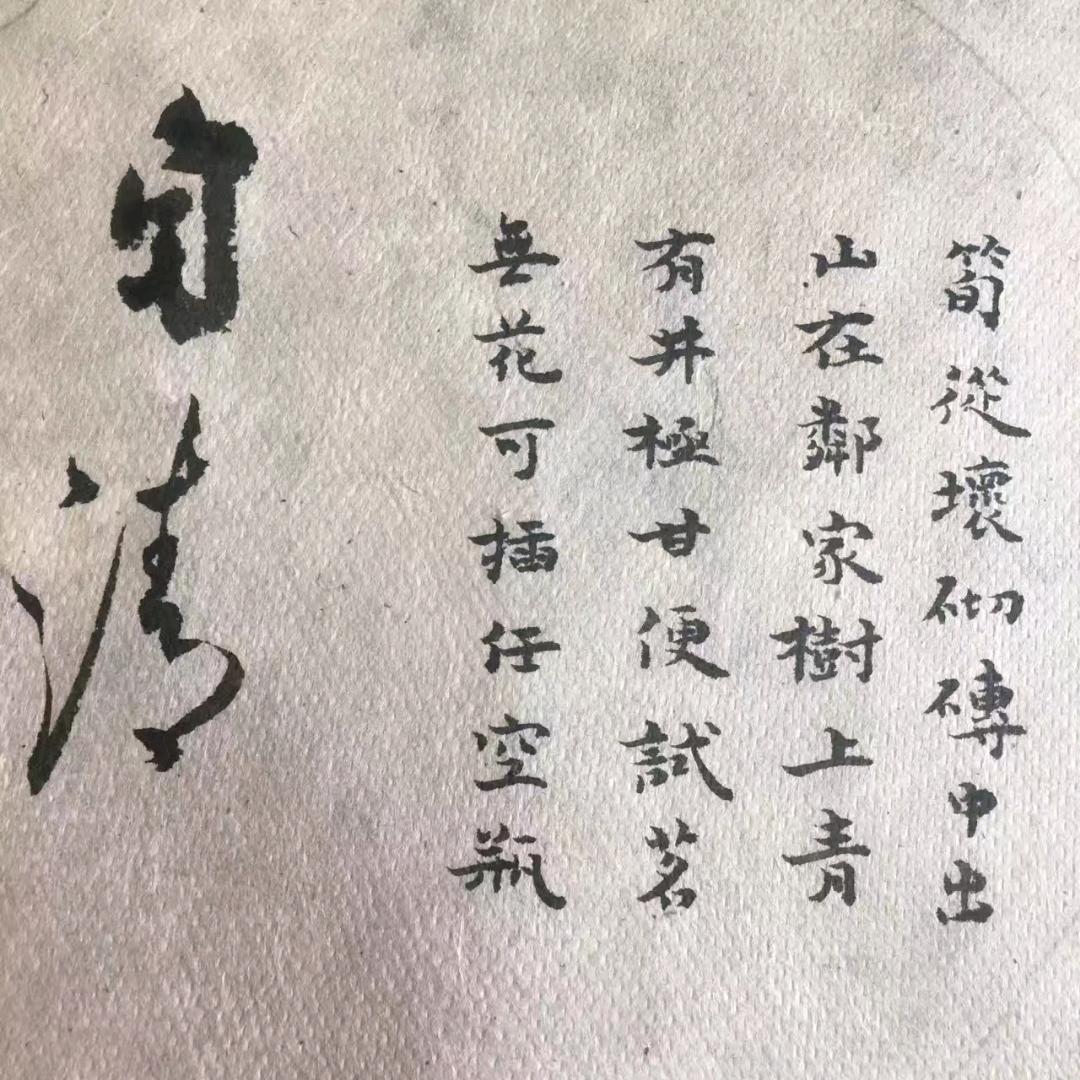 筍從壞砌磚中出
山在鄰家樹上青
有井極甘便試茗
無花可插任空瓶
自清